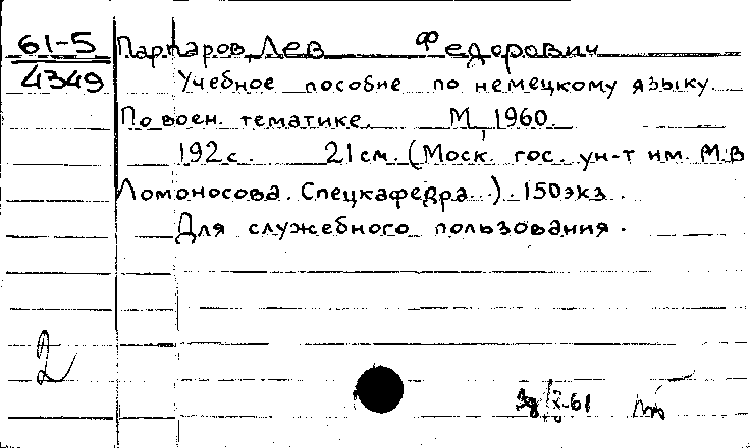 61-5 Парпаров, Лев Федорович
4349 Учебное пособие по немецкому языку.
По воен. тематике. М, 1960.
192с. 21см. (Моск. гос. ун-т им. М.В
Ломоносова. Спецкафедра.). 150экз.
Для служебного пользования.
2